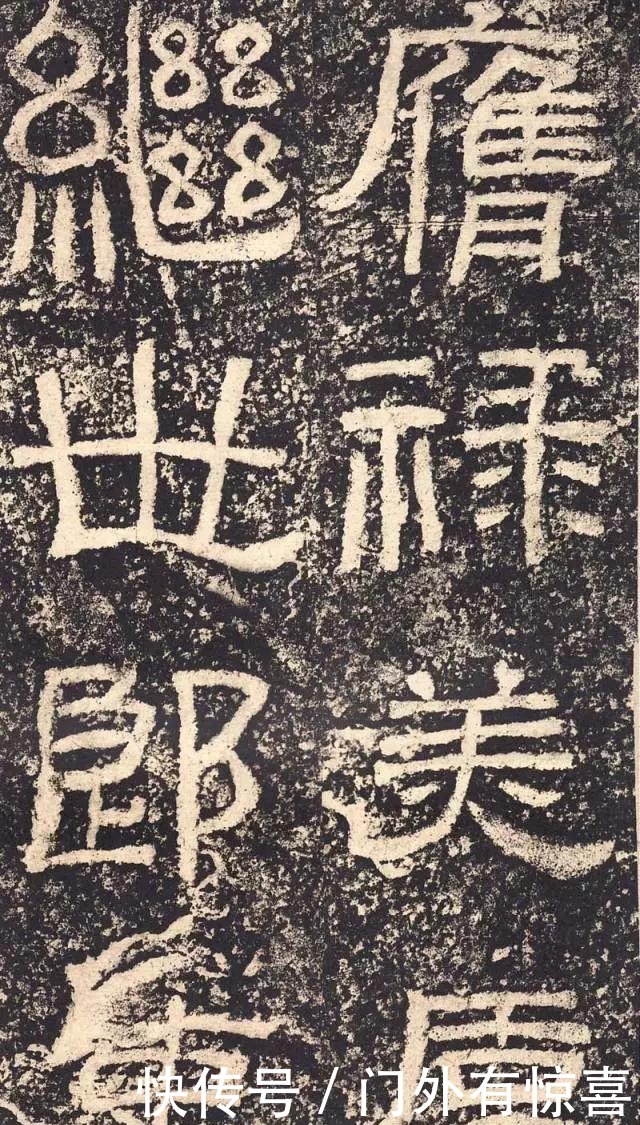 膺禄美
繼世郎
快传号/门外有惊喜